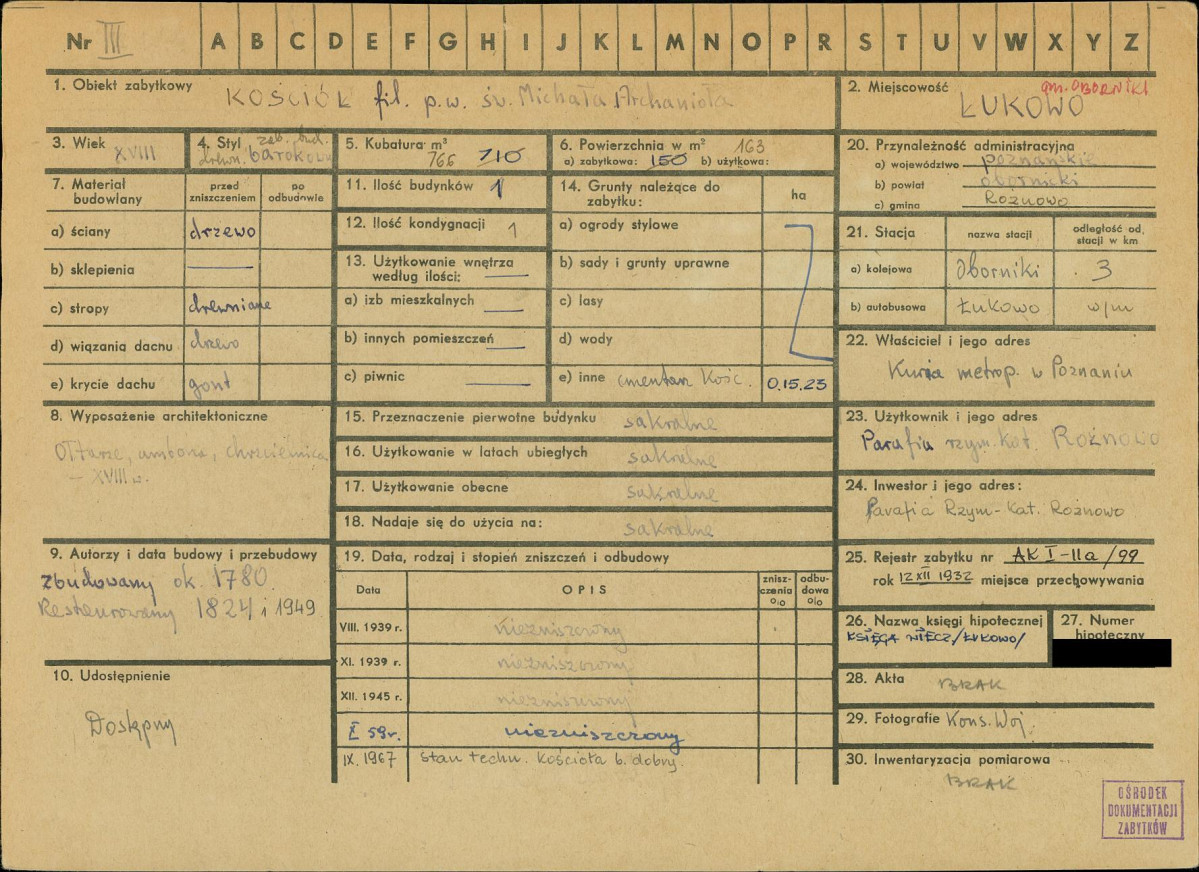 Nr III A B C D E F G H I J K L M N O P R S T U V W X Y Z
1. Obiekt zabytkowy
KOŚCIÓŁ fil. p.w. św. Michała Archanioła
2. Miejscowość
gm. OBORNIKI
ŁUKOWO
3. Wiek
XVIII
4. Styl zab. bud.
drewn. barokowy
5. Kubatura m³
766 710
6. Powierzchnia w m² 163
a) zabytkowa: 150 b) użytkowa:
20. Przynależność administracyjna
a) województwo poznańskie
b) powiat obornicki
c) gmina Rożnowo
7. Materiał budowlany
przed zniszczeniem
po odbudowie
a) ściany drzewo
b) sklepienia —
c) stropy drewniane
d) wiązania dachu drzewo
e) krycie dachu gont
11. Ilość budynków 1
12. Ilość kondygnacji 1
13. Użytkowanie wnętrza
według ilości: —
a) izb mieszkalnych —
b) innych pomieszczeń —
c) piwnic —
14. Grunty należące do
zabytku:
ha
a) ogrody stylowe
b) sady i grunty uprawne
c) lasy
d) wody
e) inne cmentarz Kość. 0.15.23
21. Stacja
nazwa stacji
odległość od stacji w km
a) kolejowa Oborniki 3
b) autobusowa Łukowo w/m
22. Właściciel i jego adres
Kuria metrop. w Poznaniu
8. Wyposażenie architektoniczne
Ołtarze, ambona, chrzcielnica
– XVIII w.
15. Przeznaczenie pierwotne budynku sakralne
16. Użytkowanie w latach ubiegłych sakralne
17. Użytkowanie obecne sakralne
18. Nadaje się do użycia na: sakralne
23. Użytkownik i jego adres
Parafia rzym. Kat. ROŻNOWO
24. Inwestor i jego adres:
Parafia Rzym-Kat. Rożnowo
9. Autorzy i data budowy i przebudowy
zbudowany ok. 1780.
Restaurowany 1824 i 1949
19. Data, rodzaj i stopień zniszczeń i odbudowy
Data
OPIS
znisz-
czenia
%
odbu-
dowa
%
VIII. 1939 r. niezniszczony
XI. 1939 r. niezniszczony
XII. 1945 r. niezniszczony
X 59r. niezniszczony
IX. 1967 stan techn. Kościoła b. dobry.
25. Rejestr zabytku nr AK I-IIa/99
rok 12 XII 1932 miejsce przechowywania
26. Nazwa księgi hipotecznej
KSIĘGA WIECZ/ŁUKOWO/
27. Numer
hipoteczny
10. Udostępnienie
Dostępny
28. Akta BRAK
29. Fotografie Kons. Woj.
30. Inwentaryzacja pomiarowa
BRAK
OŚRODEK
DOKUMENTACJI
ZABYTKÓW